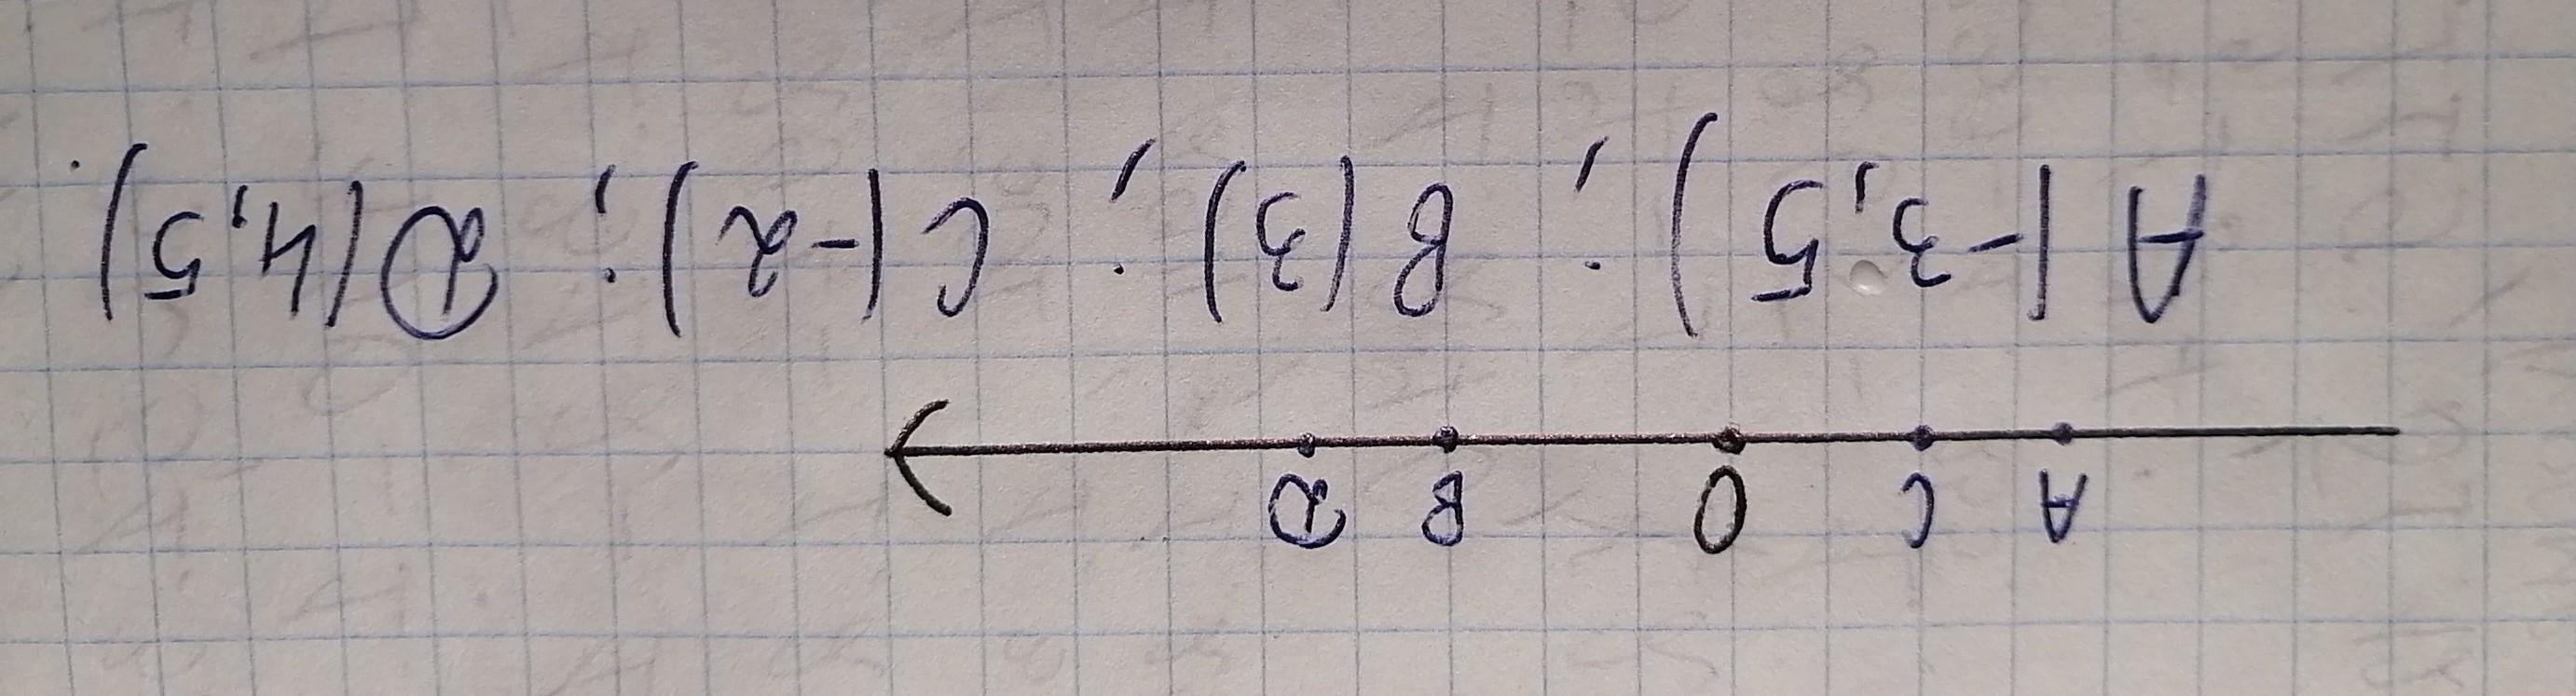 A C O B D
A (-3,5); B (3); C (-2); D (4,5).